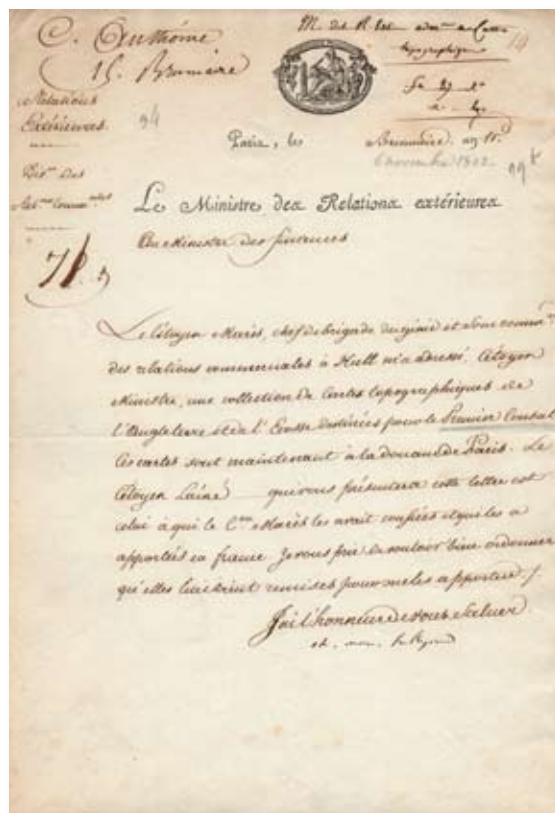 C. Anthéme
15. Brumaire
M. des R. Ext.
topographiques
Relations
Extérieures.
94
Paris, les Brumaire, an 11.
6 novembre 1802
Don des
Le Ministre des Relations extérieures
Au Ministre des finances
Le Citoyen Marès, chef de brigade du génie et Sous comm.re
des relations commerciales à Hull m'a adressé, Citoyen
Ministre, une collection de Cartes topographiques de
l'Angleterre et de l'Ecosse destinées pour le Premier Consul
les cartes sont maintenant à la douane de Paris. Le
Citoyen Lainé qui vous présentera cette lettre est
celui à qui le C.en Marès les avait confiées et qui les a
apportées en france Je vous prie de vouloir bien ordonner
qu'elles lui soient remises pour me les apporter /.
J'ai l'honneur de vous Saluer